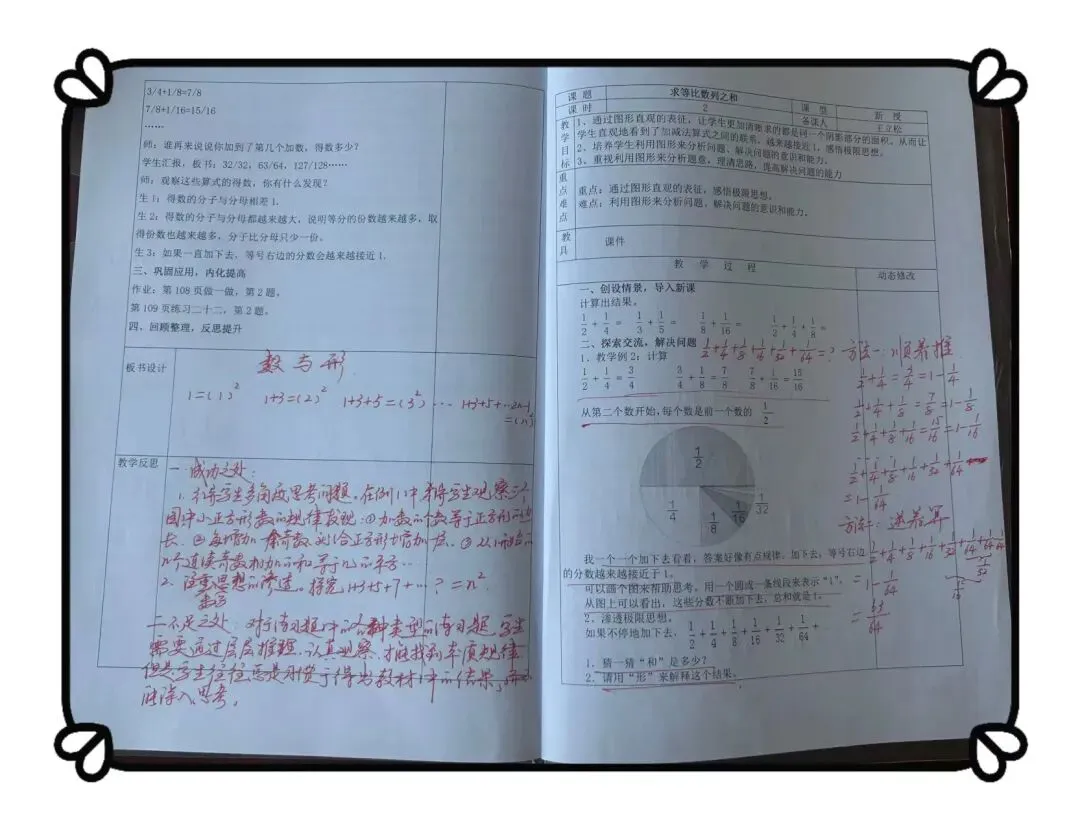 3/4+1/8=7/8
7/8+1/16=15/16
……
师：谁再来说说你加到了第几个加数，得数多少？
学生汇报，板书：32/32，63/64，127/128……
师：观察这些算式的得数，你有什么发现？
生1：得数的分子与分母相差1.
生2：得数的分子与分母都越来越大，说明等分的份数越来越多，取
得份数也越来越多，分子比分母只少一份。
生3：如果一直加下去，等号右边的分数会越来越接近1.
三、巩固应用，内化提高
作业：第108页做一做，第2题。
第109页练习二十二，第2题。
四、回顾整理，反思提升
板书设计
数与形
1=(1)² 1+3=(2)² 1+3+5=(3)² … 1+3+5+…2n-1
=(n)²
教学反思
一、成功之处：
1. 引导学生多角度思考问题。在例1中
图中小正方形数的规律发现：①加数的个数等于正方形的边
长。②每增加一个奇数，
个连续奇数相加的和等于n的平方…
2. 注重思想的渗透。探究1+3+5+7+…?=n²
二、不足之处：对于练习题中的各种类型的练习题，学生
需要通过层层推理、认真观察，才能找到本质规律
但是学生往往还是习惯于得出教材上中的结果，
深入思考。
课题 求等比数列之和 课型 新授
课时 2 备课人 王立松
教学目标
1、通过图形直观的表征，让学生更加清晰求的都是同一个阴影部分的面积。从而让
学生直观地看到了加减法算式之间的联系，越来越接近1，感悟极限思想。
2、培养学生利用图形来分析问题、解决问题的意识和能力。
3、重视利用图形来分析题意，理清思路，提高解决问题的能力
重点难点
重点：通过图形直观的表征，感悟极限思想。
难点：利用图形来分析问题、解决问题的意识和能力。
教具 课件
教 学 过 程 动态修改
一、创设情景，导入新课
计算出结果。
1/2+1/4= 1/3+1/5= 1/8+1/16= 1/2+1/4+1/8=
二、探索交流，解决问题 1/2+1/4+1/8+1/16+1/32+1/64=？
1、教学例2：计算
1/2+1/4=3/4 3/4+1/8=7/8 7/8+1/16=15/16
从第二个数开始，每个数是前一个数的 1/2
1/2
1/4
1/8
1/16
1/32
我一个一个加下去看看，答案好像有点规律。加下去，等号右边
的分数越来越接近于1。
可以画个图来帮助思考。用一个圆或一条线段来表示“1”。
从图上可以看出，这些分数不断加下去，总和就是1。
2、渗透极限思想。
如果不停地加下去，1/2+1/4+1/8+1/16+1/32+1/64+
1．猜一猜“和”是多少？
2．请用“形”来解释这个结果。
方法一：顺着推
1/2+1/4=3/4=1-1/4
1/2+1/4+1/8=7/8=1-1/8
1/2+1/4+1/8+1/16=15/16=1-1/16
1/2+1/4+1/8+1/16+1/32+1/64
=1-1/64
方法二：逆着算
1/2+1/4+1/8+1/16+1/32+1/64+1/64-1/64
1/32
1/16
=1-1/64
=63/64